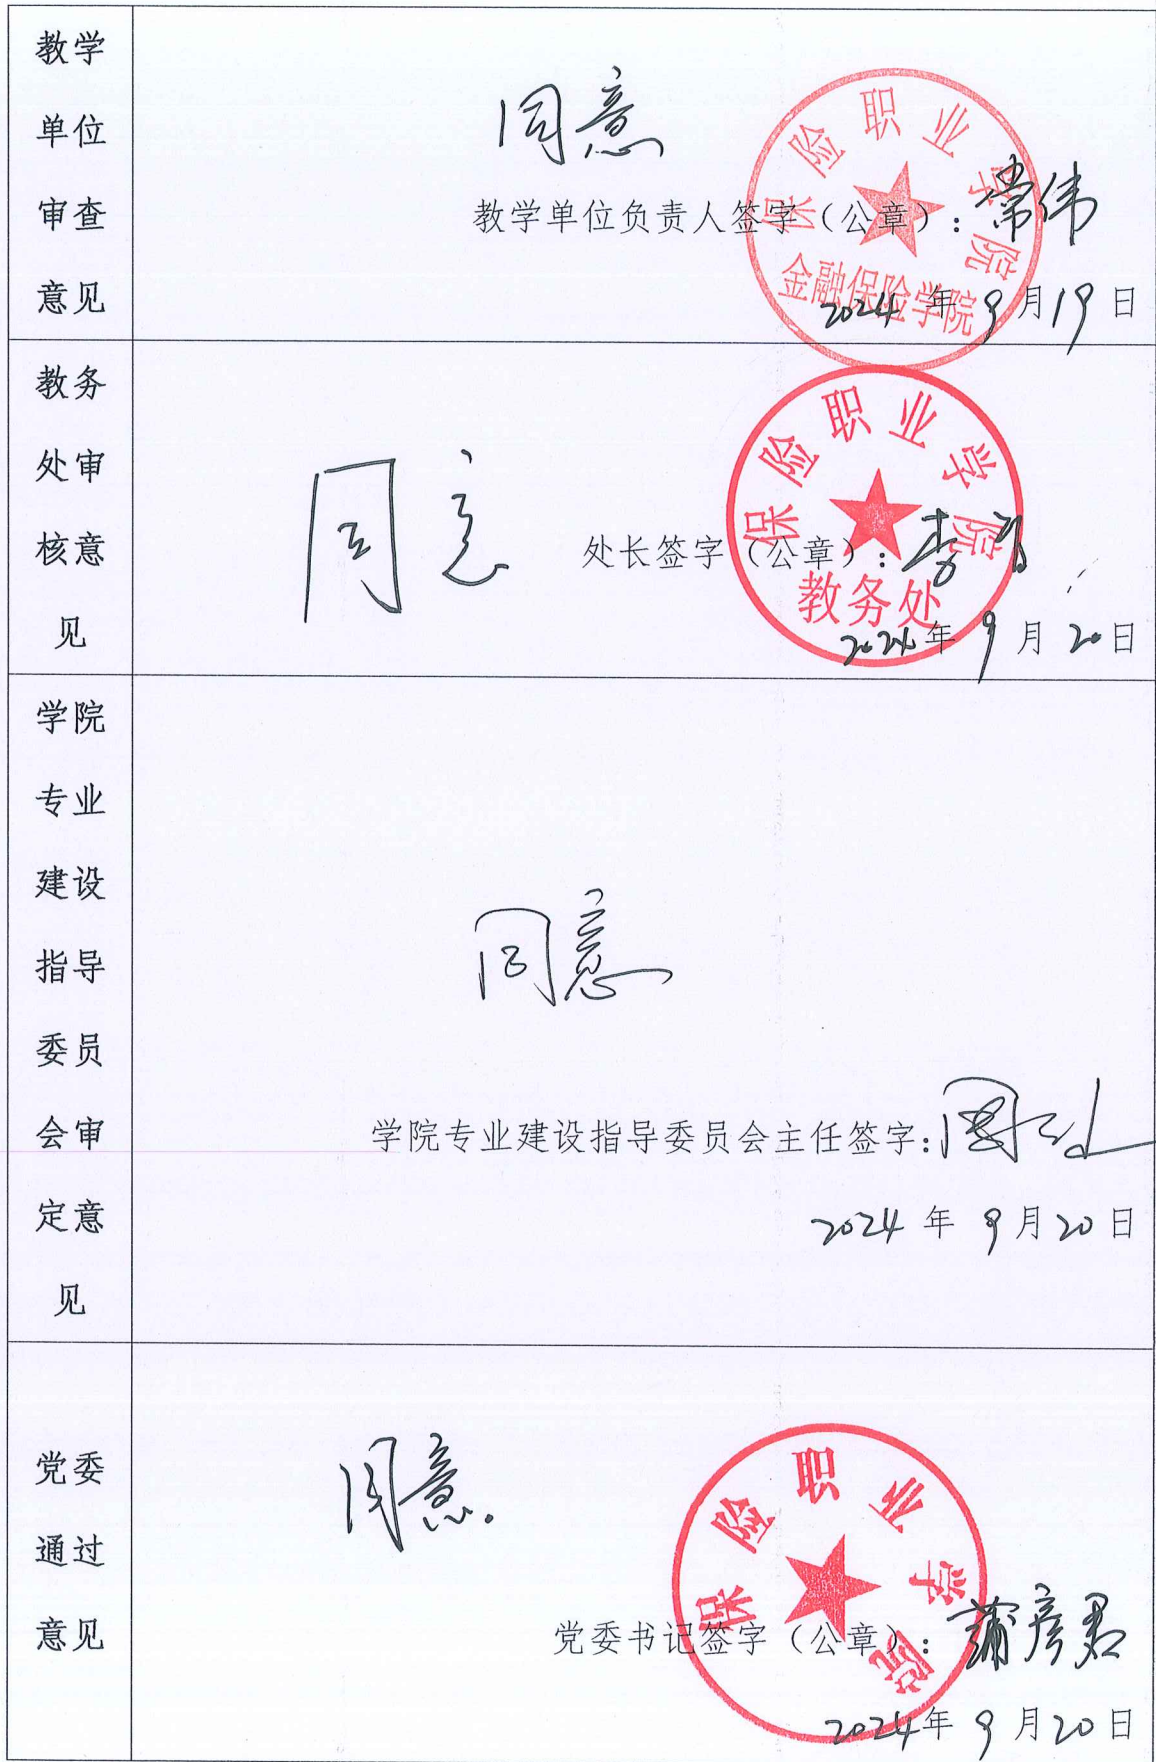 教学
单位
审查
意见
同意
教学单位负责人签字（公章）：常伟
保险职业学院
金融保险学院
2024年9月19日
教务
处审
核意
见
同意
处长签字（公章）：李
保险职业学院
教务处
2024年9月20日
学院
专业
建设
指导
委员
会审
定意
见
同意
学院专业建设指导委员会主任签字：
2024年9月20日
党委
通过
意见
同意.
党委书记签字（公章）：蒲彦君
保险职业学院
2024年9月20日